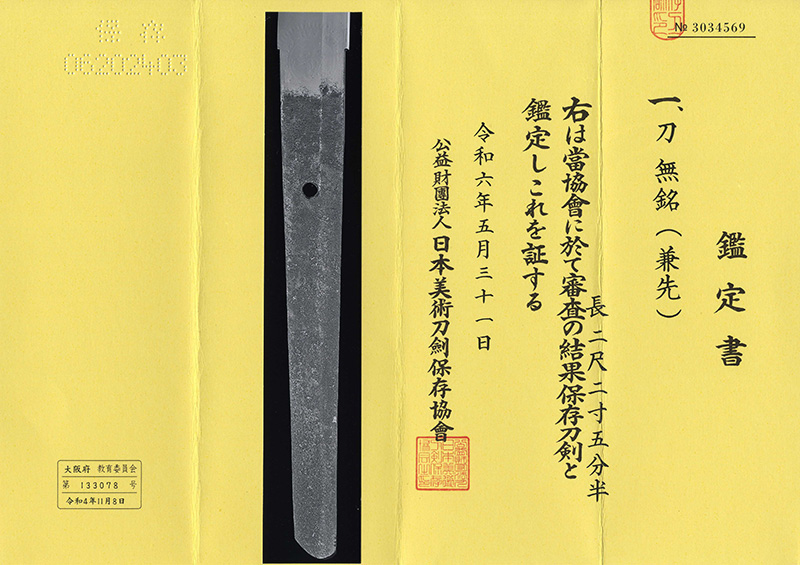 № 3034569
鑑定書
一、刀 無銘（兼先）
長二尺二寸五分半
右は當協會に於て審査の結果保存刀剣と
鑑定しこれを証する
令和六年五月三十一日
公益財團法人 日本美術刀劍保存協會
保存
06202403
大阪府 教育委員会
第 133078 号
令和4年11月8日